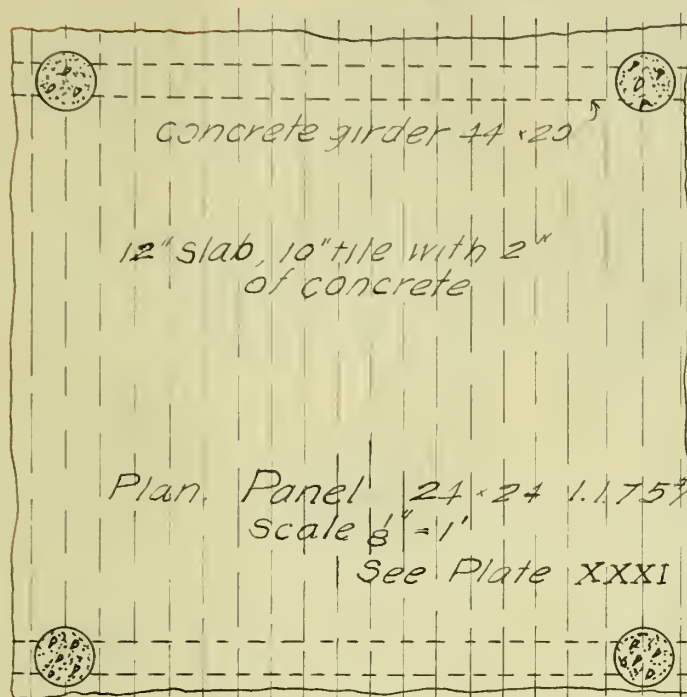 concrete girder 44 × 20
12" slab, 10" tile with 2"
of concrete
Plan. Panel 24 × 24 1.1.75#
Scale ⅛" = 1'
See Plate XXXI